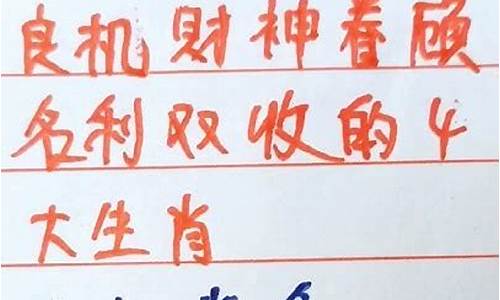 良机财神眷顾
名利双收的4
大生肖